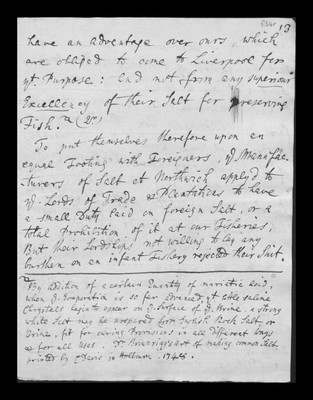 13
have an advantage over ours, which
are obliged to come to Liverpool for
yt. Purpose: and not from any superiour
Excellency of their Salt for preserving
Fish.
To put themselves therefore upon an
equal Footing with Foreigners, ye Manufac-
turers of Salt at Northwich apply'd to
ye Lords of Trade & Plantations to have
a small Duty laid on foreign Salt, or a
total Prohibition of it at our Fisheries,
But their Lordships not willing to lay any
burthen on an infant Fishery rejected their Suit.
By addition of a certain Quantity of muriatic acid,
when ye Evaporation is so far advanced, yt the saline
Chrystals begin to appear on ye Surface of ye Brine, a strong
white Salt may be prepared from Rock Salt or
Brine, fit for curing Provisions in all different ways
& for all uses. Dr Brownrigg's art of making common Salt
printed by Davis in Holborn. 1748.